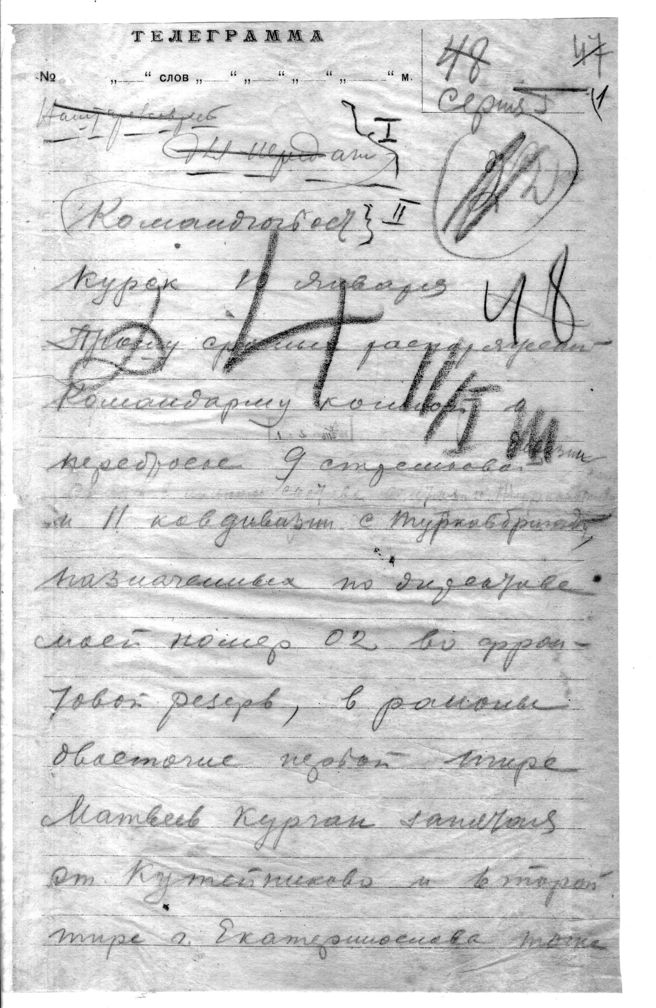 ТЕЛЕГРАММА
48 47
№ „ “ слов „ “„ “„ “„ “ м.
Серия
передати I
Командюгвост II
Курск января 48
4
Прошу срочных распоряжений
Командарму конной о
переброске 9 стрелковой дивизии
и 11 кавдивизии с Туркавбригадой,
назначенных по директиве
моей номер 02 во фрон-
товой резерв, в районы
двоеточие первой тире
Матвеев Курган западная
от Кутейниково и второй
тире г. Екатеринослава точка